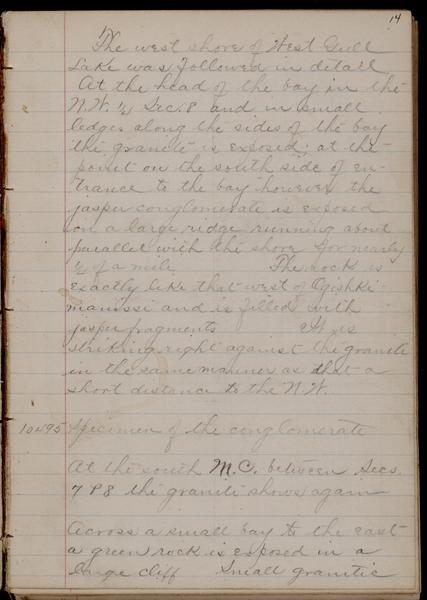 14
The west shore of West Gull
Lake was followed in detail
At the head of the bay in the
N.W. 1/4 Sec. 8 and in small
ledges along the sides of the bay
the granite is exposed; at the
point on the south side of en-
trance to the bay however the
jasper conglomerate is exposed
on a large ridge running about
parallel with the shore for nearly
1/2 of a mile. The rock is
exactly like that west of Ogishke
manissi and is filled with
jasper fragments It is
striking right against the granite
in the same manner as that a
short distance to the N.W.
10495 Specimen of the conglomerate
At the south M.C. between Secs.
7 & 8 the granite shows again
Across a small bay to the east
a green rock is exposed in a
large cliff Small granitic